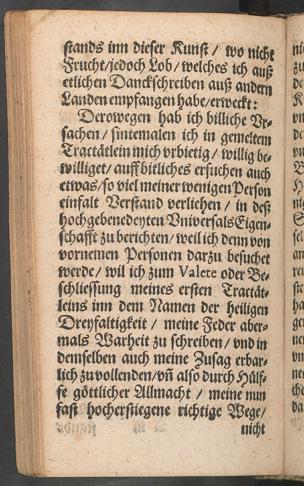 stands inn dieser Kunst / wo nicht
Frucht / jedoch Lob / welches ich auß
etlichen Danckschreiben auß andern
Landen empfangen habe / erweckt:
Derowegen hab ich billiche Vr-
sachen / sintemalen ich in gemeltem
Tractätlein mich vrbietig / willig be-
williget / auff bitliches ersuchen auch
etwas / so viel meiner wenigen Person
einfalt Verstand verliehen / in deß
hochgebenedeyten Vniversals Eigen-
schafft zu berichten / weil ich denn von
vornemen Personen darzu besuchet
werde / wil ich zum Valete oder Be-
schliessung meines ersten Tractät-
leins inn dem Namen der heiligen
Dreyfaltigkeit / meine Feder aber-
mals Warheit zu schreiben / vnd in
demselben auch meine Zusag erbar-
lich zu vollenden / vñ also durch Hülf-
fe göttlicher Allmacht / meine nun
fast hocherstiegene richtige Wege /
nicht